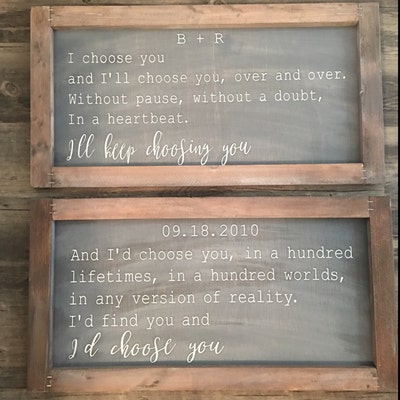 B + R
I choose you
and I'll choose you, over and over.
Without pause, without a doubt,
In a heartbeat.
I'll keep choosing you
09.18.2010
And I'd choose you, in a hundred
lifetimes, in a hundred worlds,
in any version of reality.
I'd find you and
I'd choose you